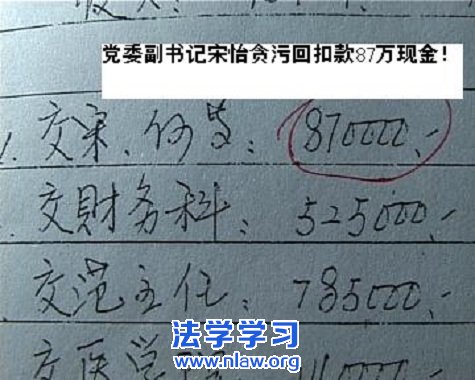 党委副书记宋怡贪污回扣款87万现金！
交宋、何等：870000.-
交財务科：525000.-
交范主任：785000.-
法学学习
www.nlaw.org
交医学